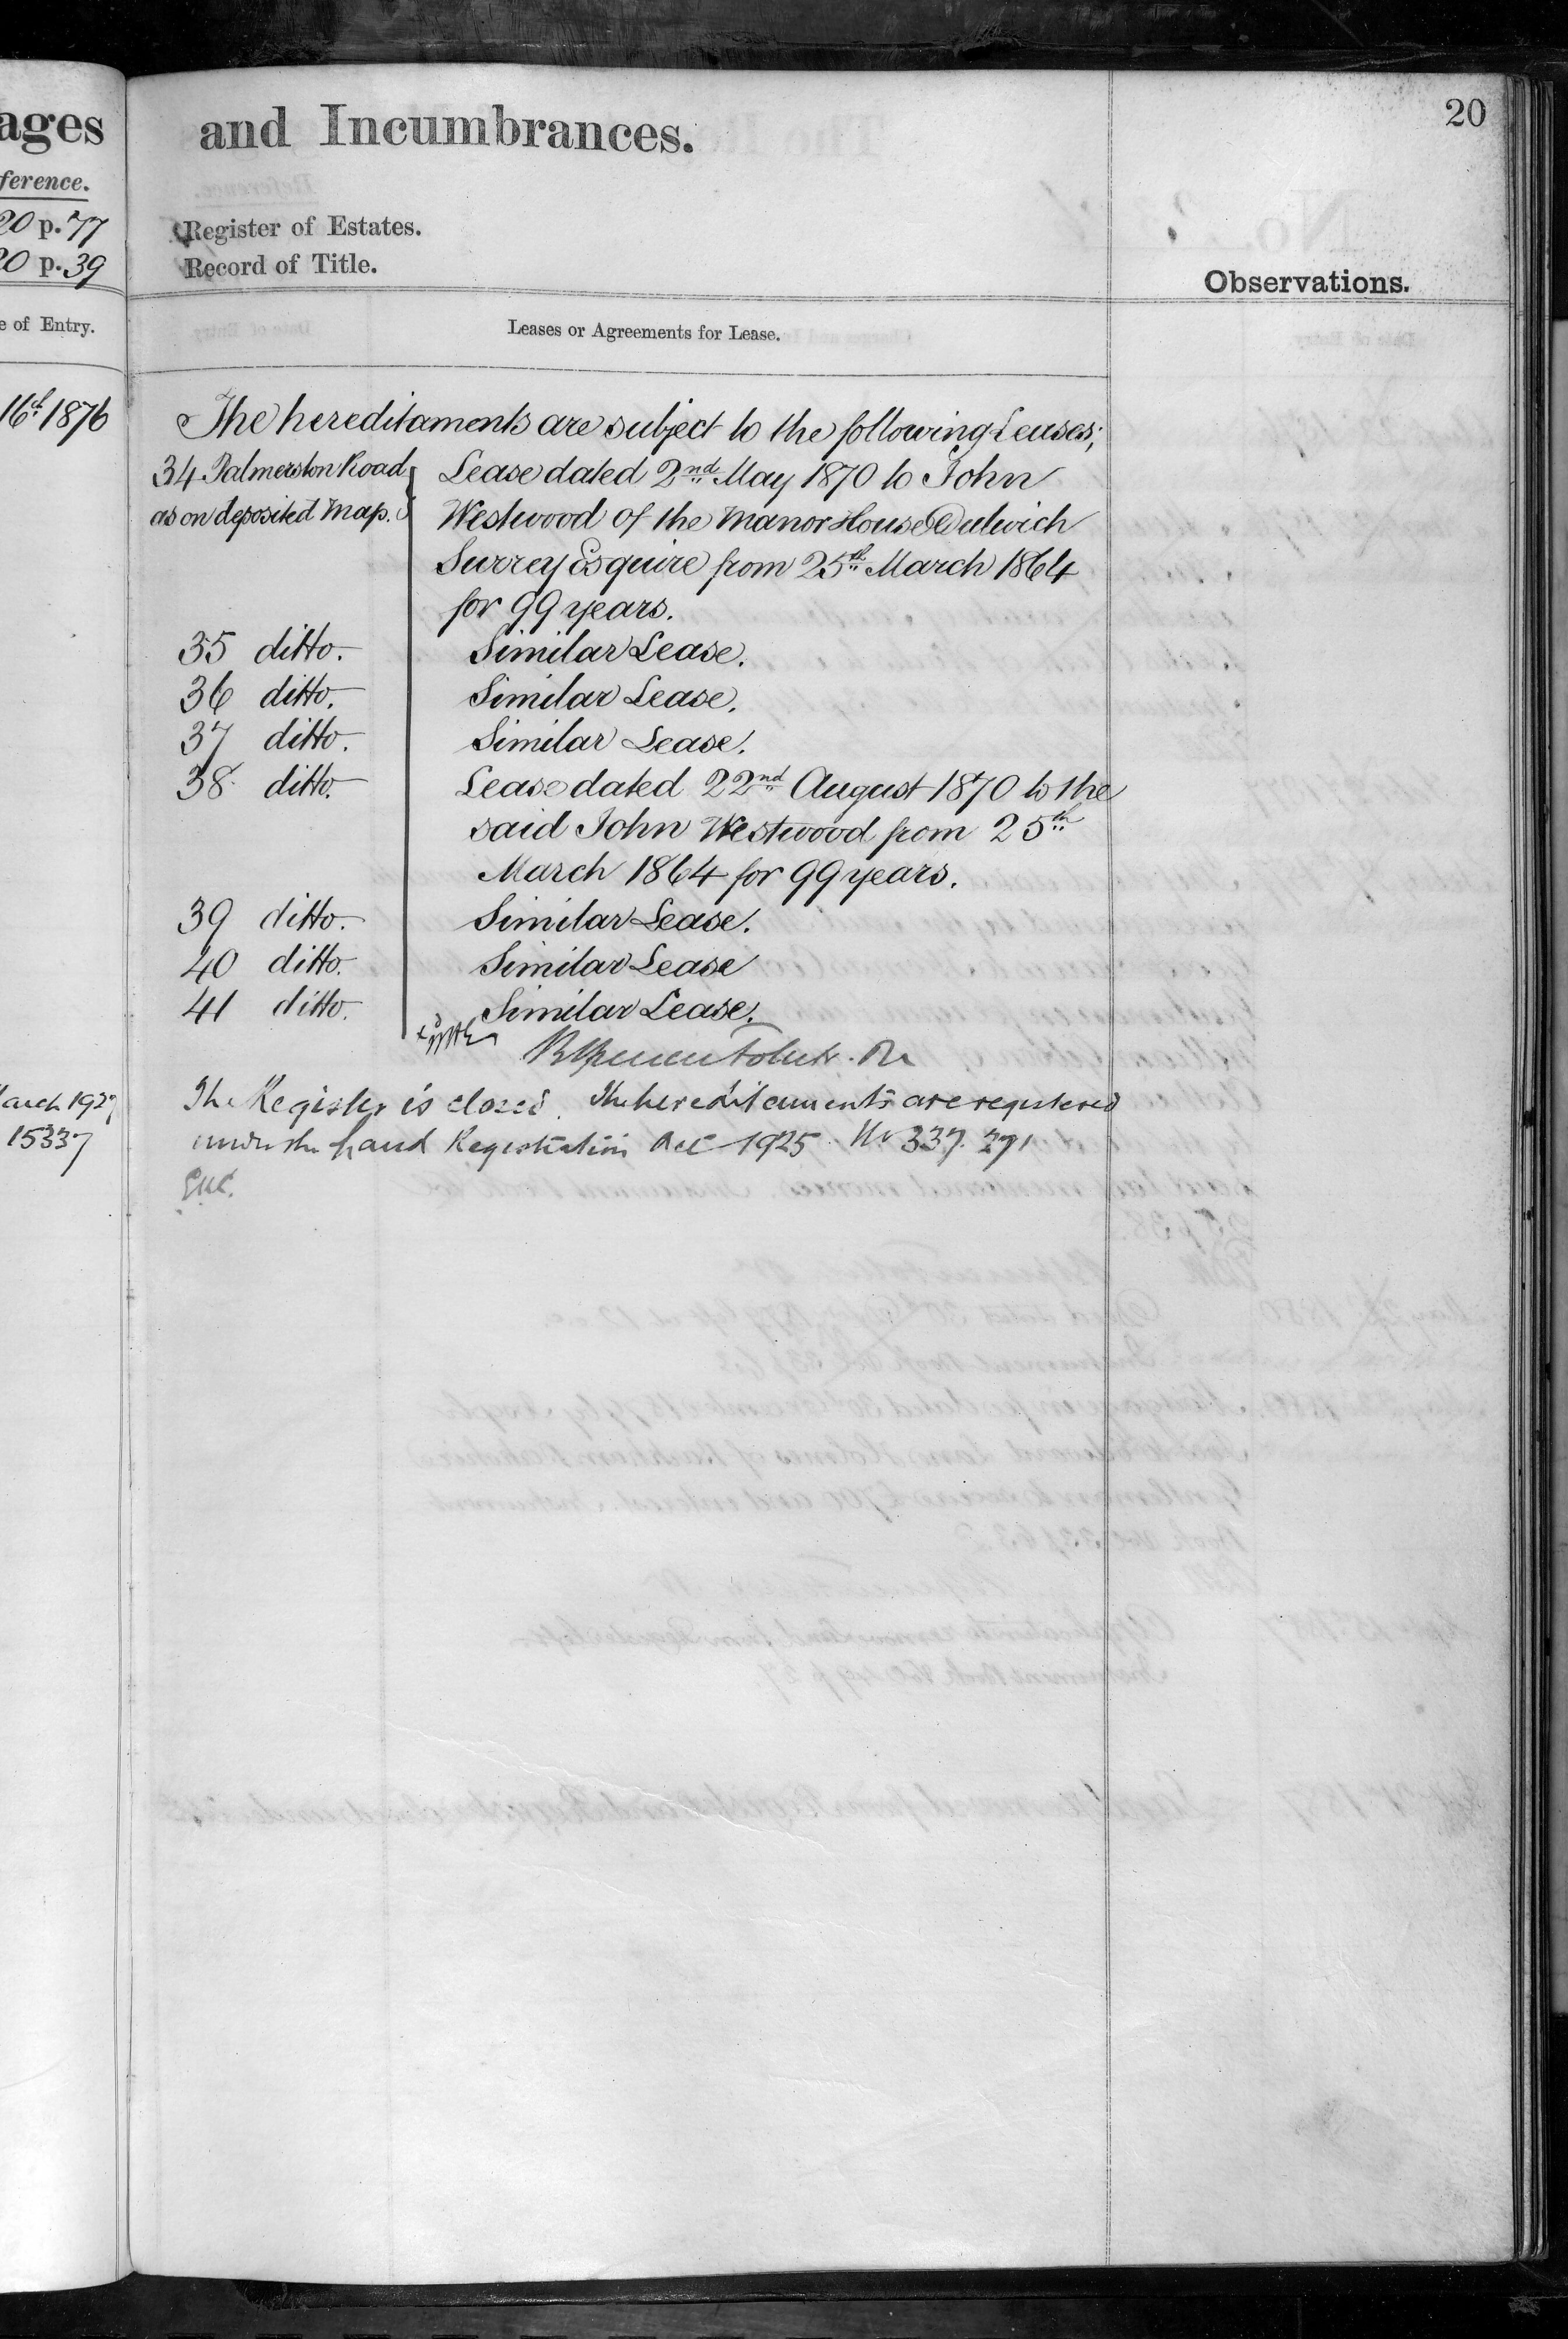 ages
ference.
20 p. 77
20 p. 39
e of Entry.
16th 1876
arch 1927
15337
20
and Incumbrances.
Register of Estates.
Record of Title.
Observations.
Leases or Agreements for Lease.
The hereditaments are subject to the following Leases;
34 Palmerston Road Lease dated 2nd May 1870 to John
as on deposited Map. Westwood of the Manor House Dulwich
Surrey Esquire from 25th March 1864
for 99 years.
35 ditto. Similar Lease.
36 ditto. Similar Lease.
37 ditto. Similar Lease.
38 ditto. Lease dated 22nd August 1870 to the
said John Westwood from 25th
March 1864 for 99 years.
39 ditto. Similar Lease.
40 ditto. Similar Lease
41 ditto. Similar Lease.
The Register is closed. The hereditaments are registered
under the Land Registration Act 1925 No 337271